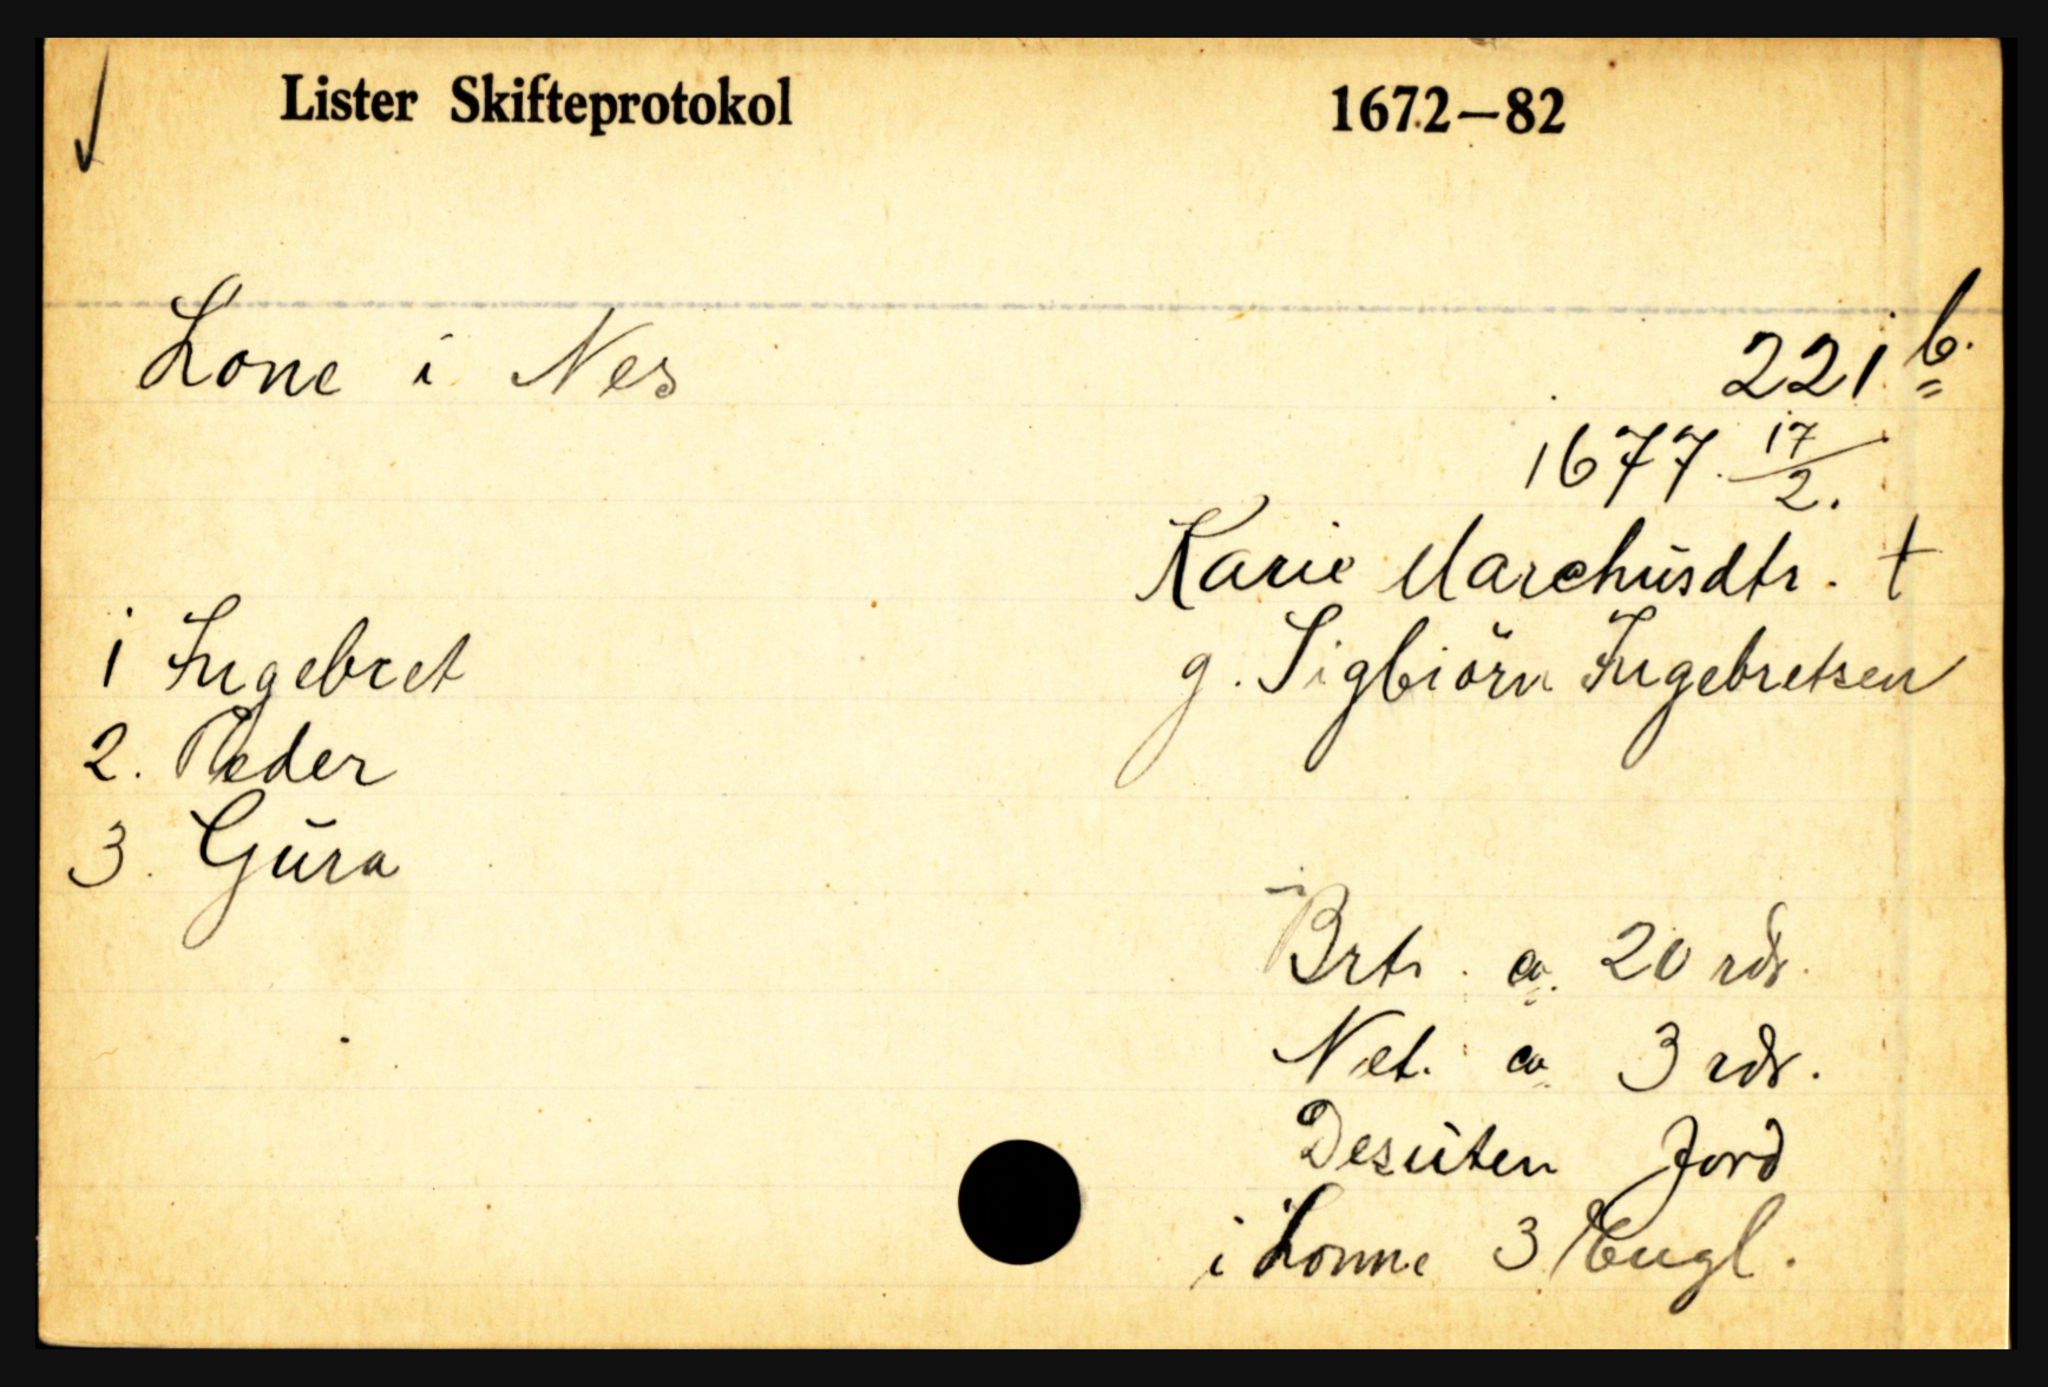 Lister Skifteprotokol 1672–82
Lone i Nes 221 b.
1677 17/2.
Karie Marchusdtr. †
1 Ingebret g. Sigbiörn Ingebretsen
2. Peder
3. Gura
Brt. ca. 20 rdr.
Net. ca. 3 rdr.
Desuten Jord
i Lonne 3 Eugl.